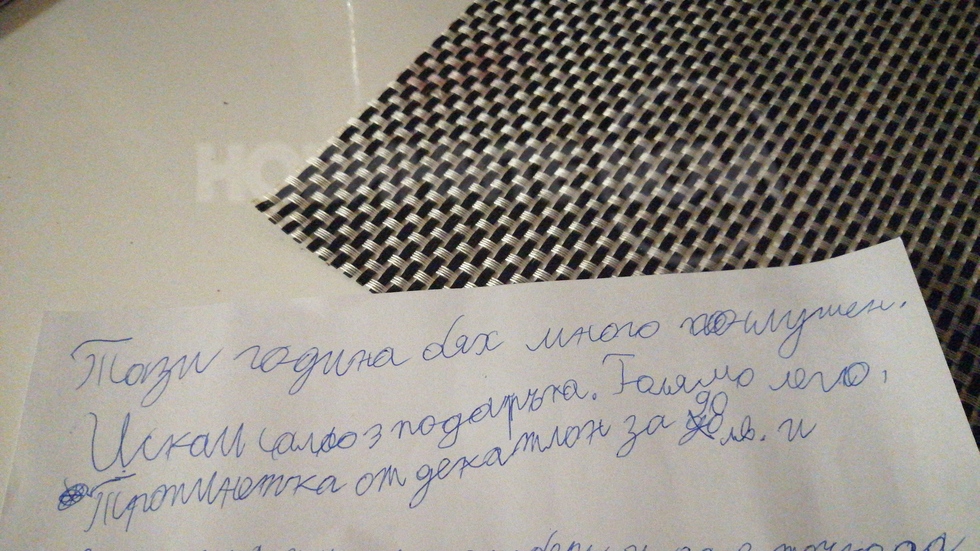 Тази година бях много послушен.
Искам само 3 подаръка. Голямо лего,
Тротинетка от декатлон за 90 лв. и